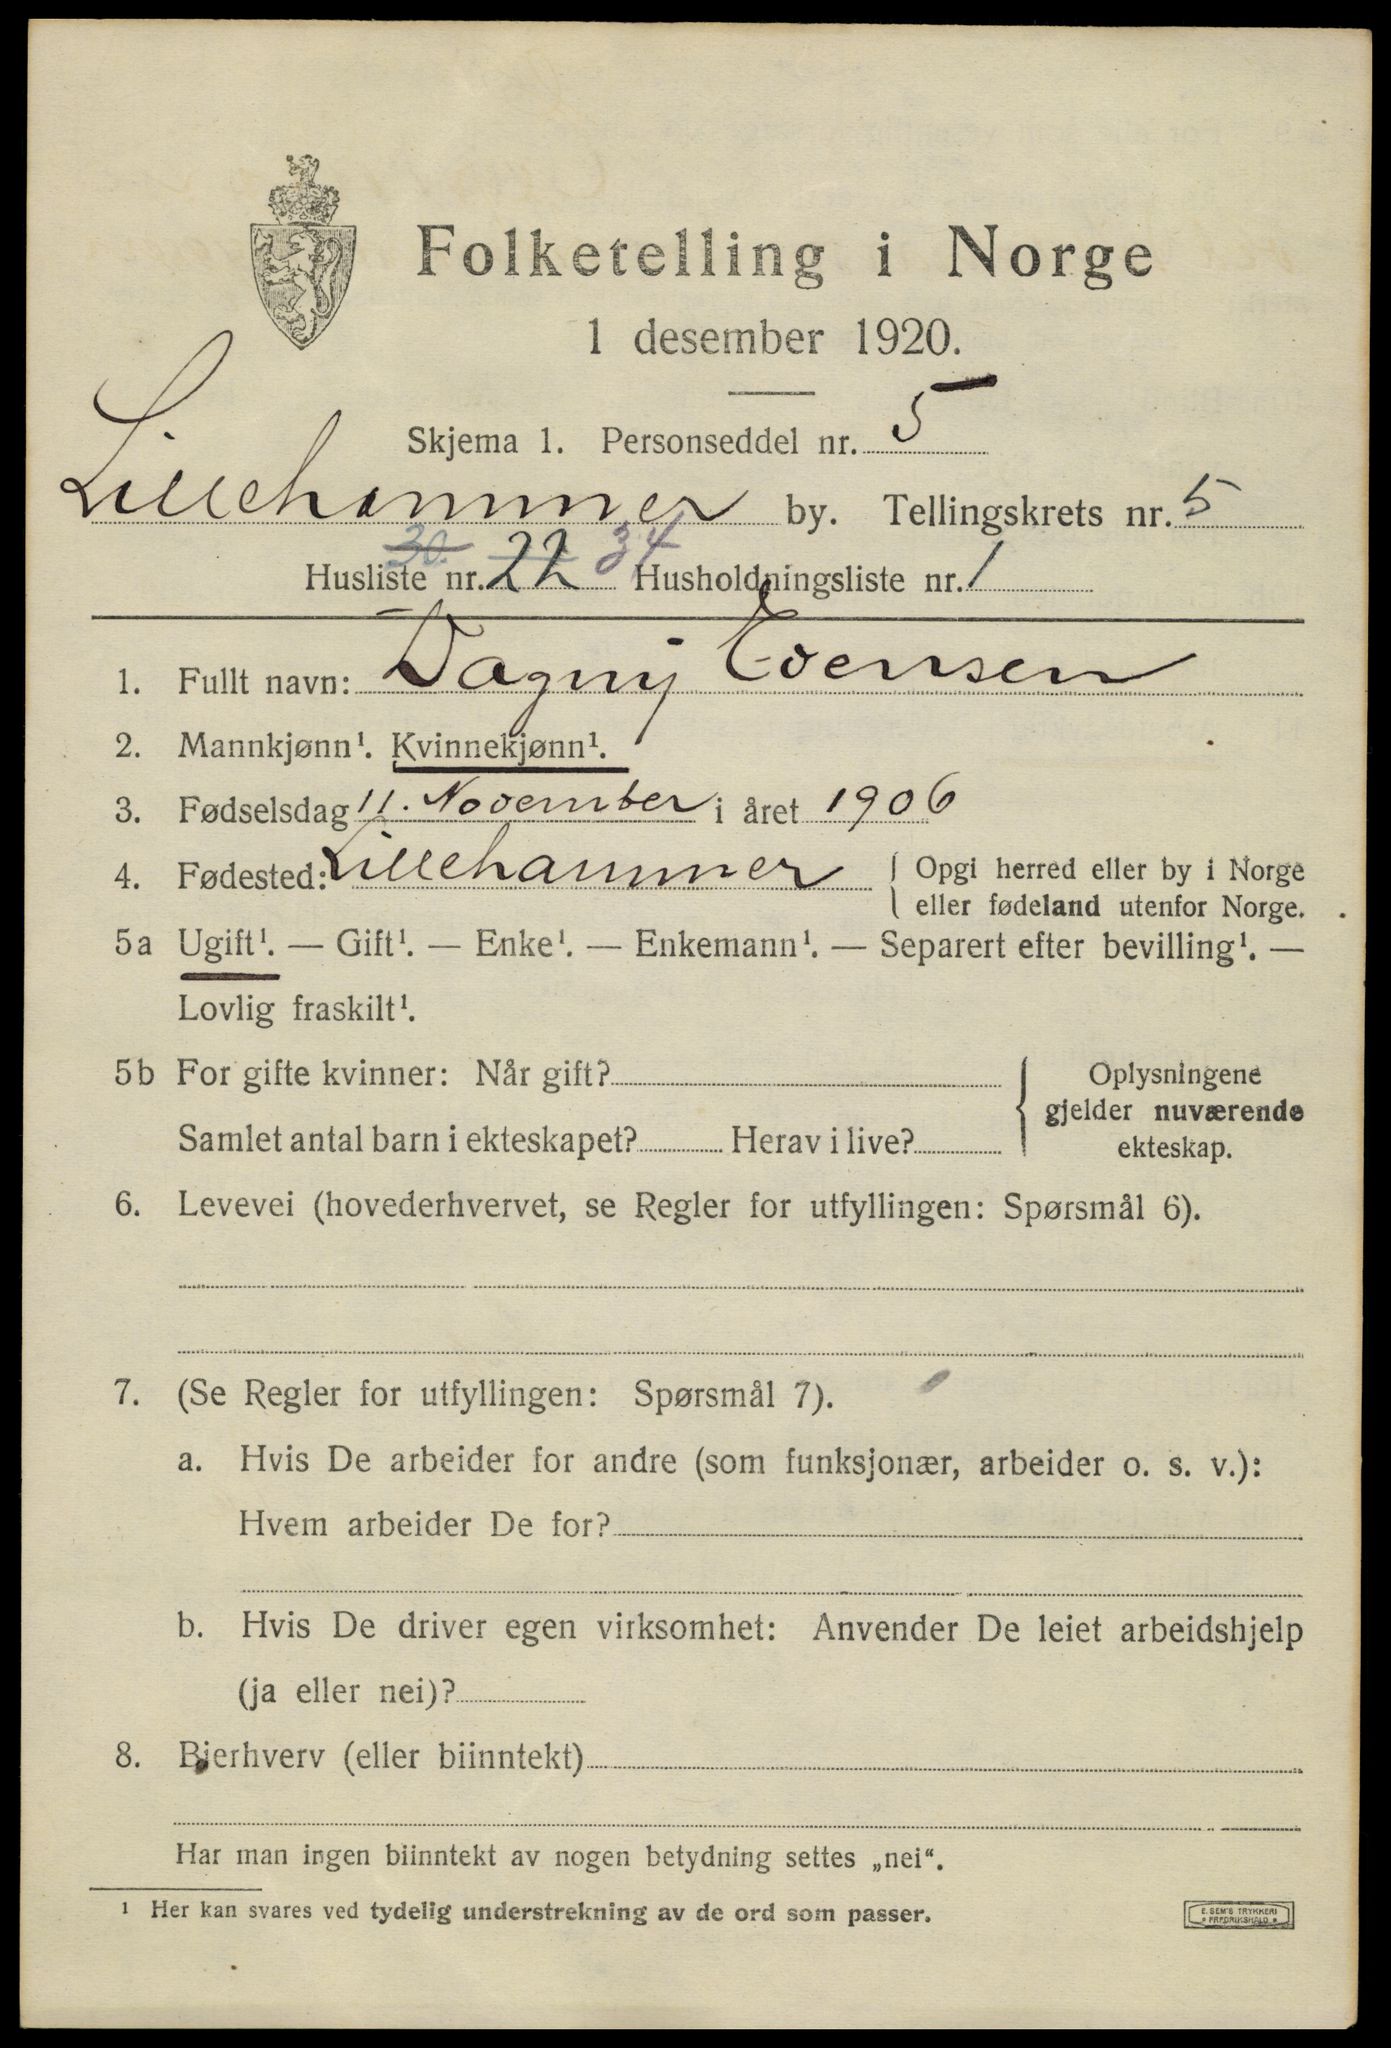 Folketelling i Norge
1 desember 1920.
Skjema 1. Personseddel nr. 5
Lillehammer by. Tellingskrets nr. 5
30. 34
Husliste nr. 22 Husholdningsliste nr. 1
1. Fullt navn: Dagny Evensen
2. Mannkjønn¹. Kvinnekjønn¹.
3. Fødselsdag 11. November i året 1906
4. Fødested: Lillehammer { Opgi herred eller by i Norge
eller fødeland utenfor Norge.
5a Ugift¹. — Gift¹. — Enke¹. — Enkemann¹. — Separert efter bevilling¹. —
Lovlig fraskilt¹.
5b For gifte kvinner: Når gift? { Oplysningene
gjelder nuværende
Samlet antal barn i ekteskapet? Herav i live? ekteskap.
6. Levevei (hovederhvervet, se Regler for utfyllingen: Spørsmål 6).
7. (Se Regler for utfyllingen: Spørsmål 7).
a. Hvis De arbeider for andre (som funksjonær, arbeider o. s. v.):
Hvem arbeider De for?
b. Hvis De driver egen virksomhet: Anvender De leiet arbeidshjelp
(ja eller nei)?
8. Bierhverv (eller biinntekt)
Har man ingen biinntekt av nogen betydning settes „nei“.
¹ Her kan svares ved tydelig understrekning av de ord som passer.
E. SEM'S TRYKKERI
* FREDRIKSHALD *